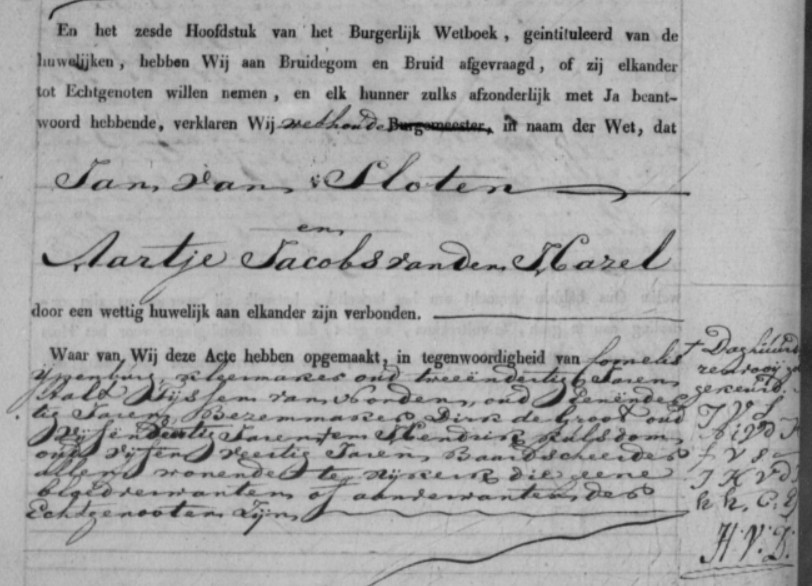 En het zesde Hoofdstuk van het Burgerlijk Wetboek, geintituleerd van de
huwelijken, hebben Wij aan Bruidegom en Bruid afgevraagd, of zij elkander
tot Echtgenoten willen nemen, en elk hunner zulks afzonderlijk met Ja beant-
woord hebbende, verklaren Wij wethoude Burgemeester, in naam der Wet, dat
Jan van Sloten
en
Aartje Jacobs van den Hazel
door een wettig huwelijk aan elkander zijn verbonden.
Waar van Wij deze Acte hebben opgemaakt, in tegenwoordigheid van Cornelis
Ypenburg, kleermaker oud tweeëndertig Jaren
Aalt Tijssen van Voorden, oud
tig Jaren, Bezemmaker Dirk de Groot oud
vijfëndertig Jaren en Hendrik Kulsdom
oud vijfenveertig Jaren Baardscheerder
allen wonende te Nijkerk die geene
bloedverwanten of aanverwanten des
Echtgenooten zijn
J V S
H. V. D.